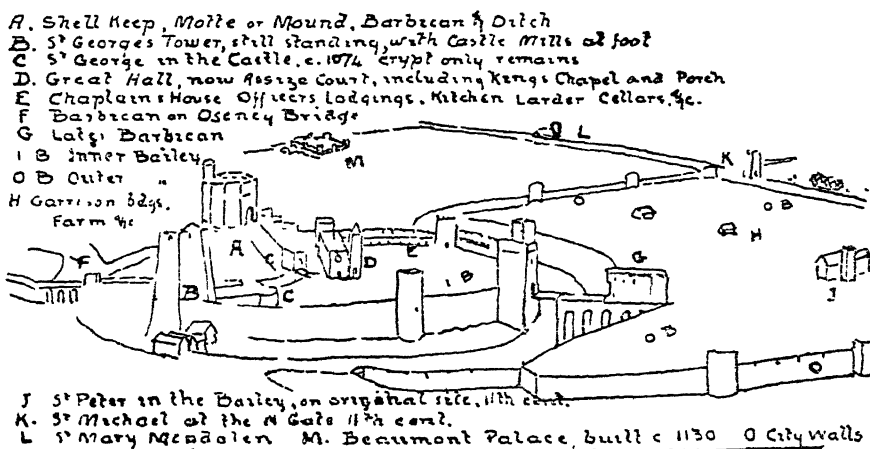 A. Shell Keep, Motte or Mound, Barbican & Ditch
B. St Georges Tower, still standing, with Castle Mills at foot
C St George in the Castle, c. 1074 crypt only remains
D. Great Hall, now Assize Court, including Kings Chapel and Porch
E Chaplains House Officers Lodgings, Kitchen Larder Cellars, &c.
F Barbican on Oseney Bridge
G Later Barbican
I B Inner Bailey
O B Outer "
H Garrison bdgs.
Farm &c
L
M
K
O
O B
H
A
C
D
E
F
B
C
I B
G
J
O B
O
J St Peter in the Bailey, on original site, 11th cent.
K. St Michael at the N Gate 11th cent.
L St Mary Magdalen M. Beaumont Palace, built c 1130 O City Walls